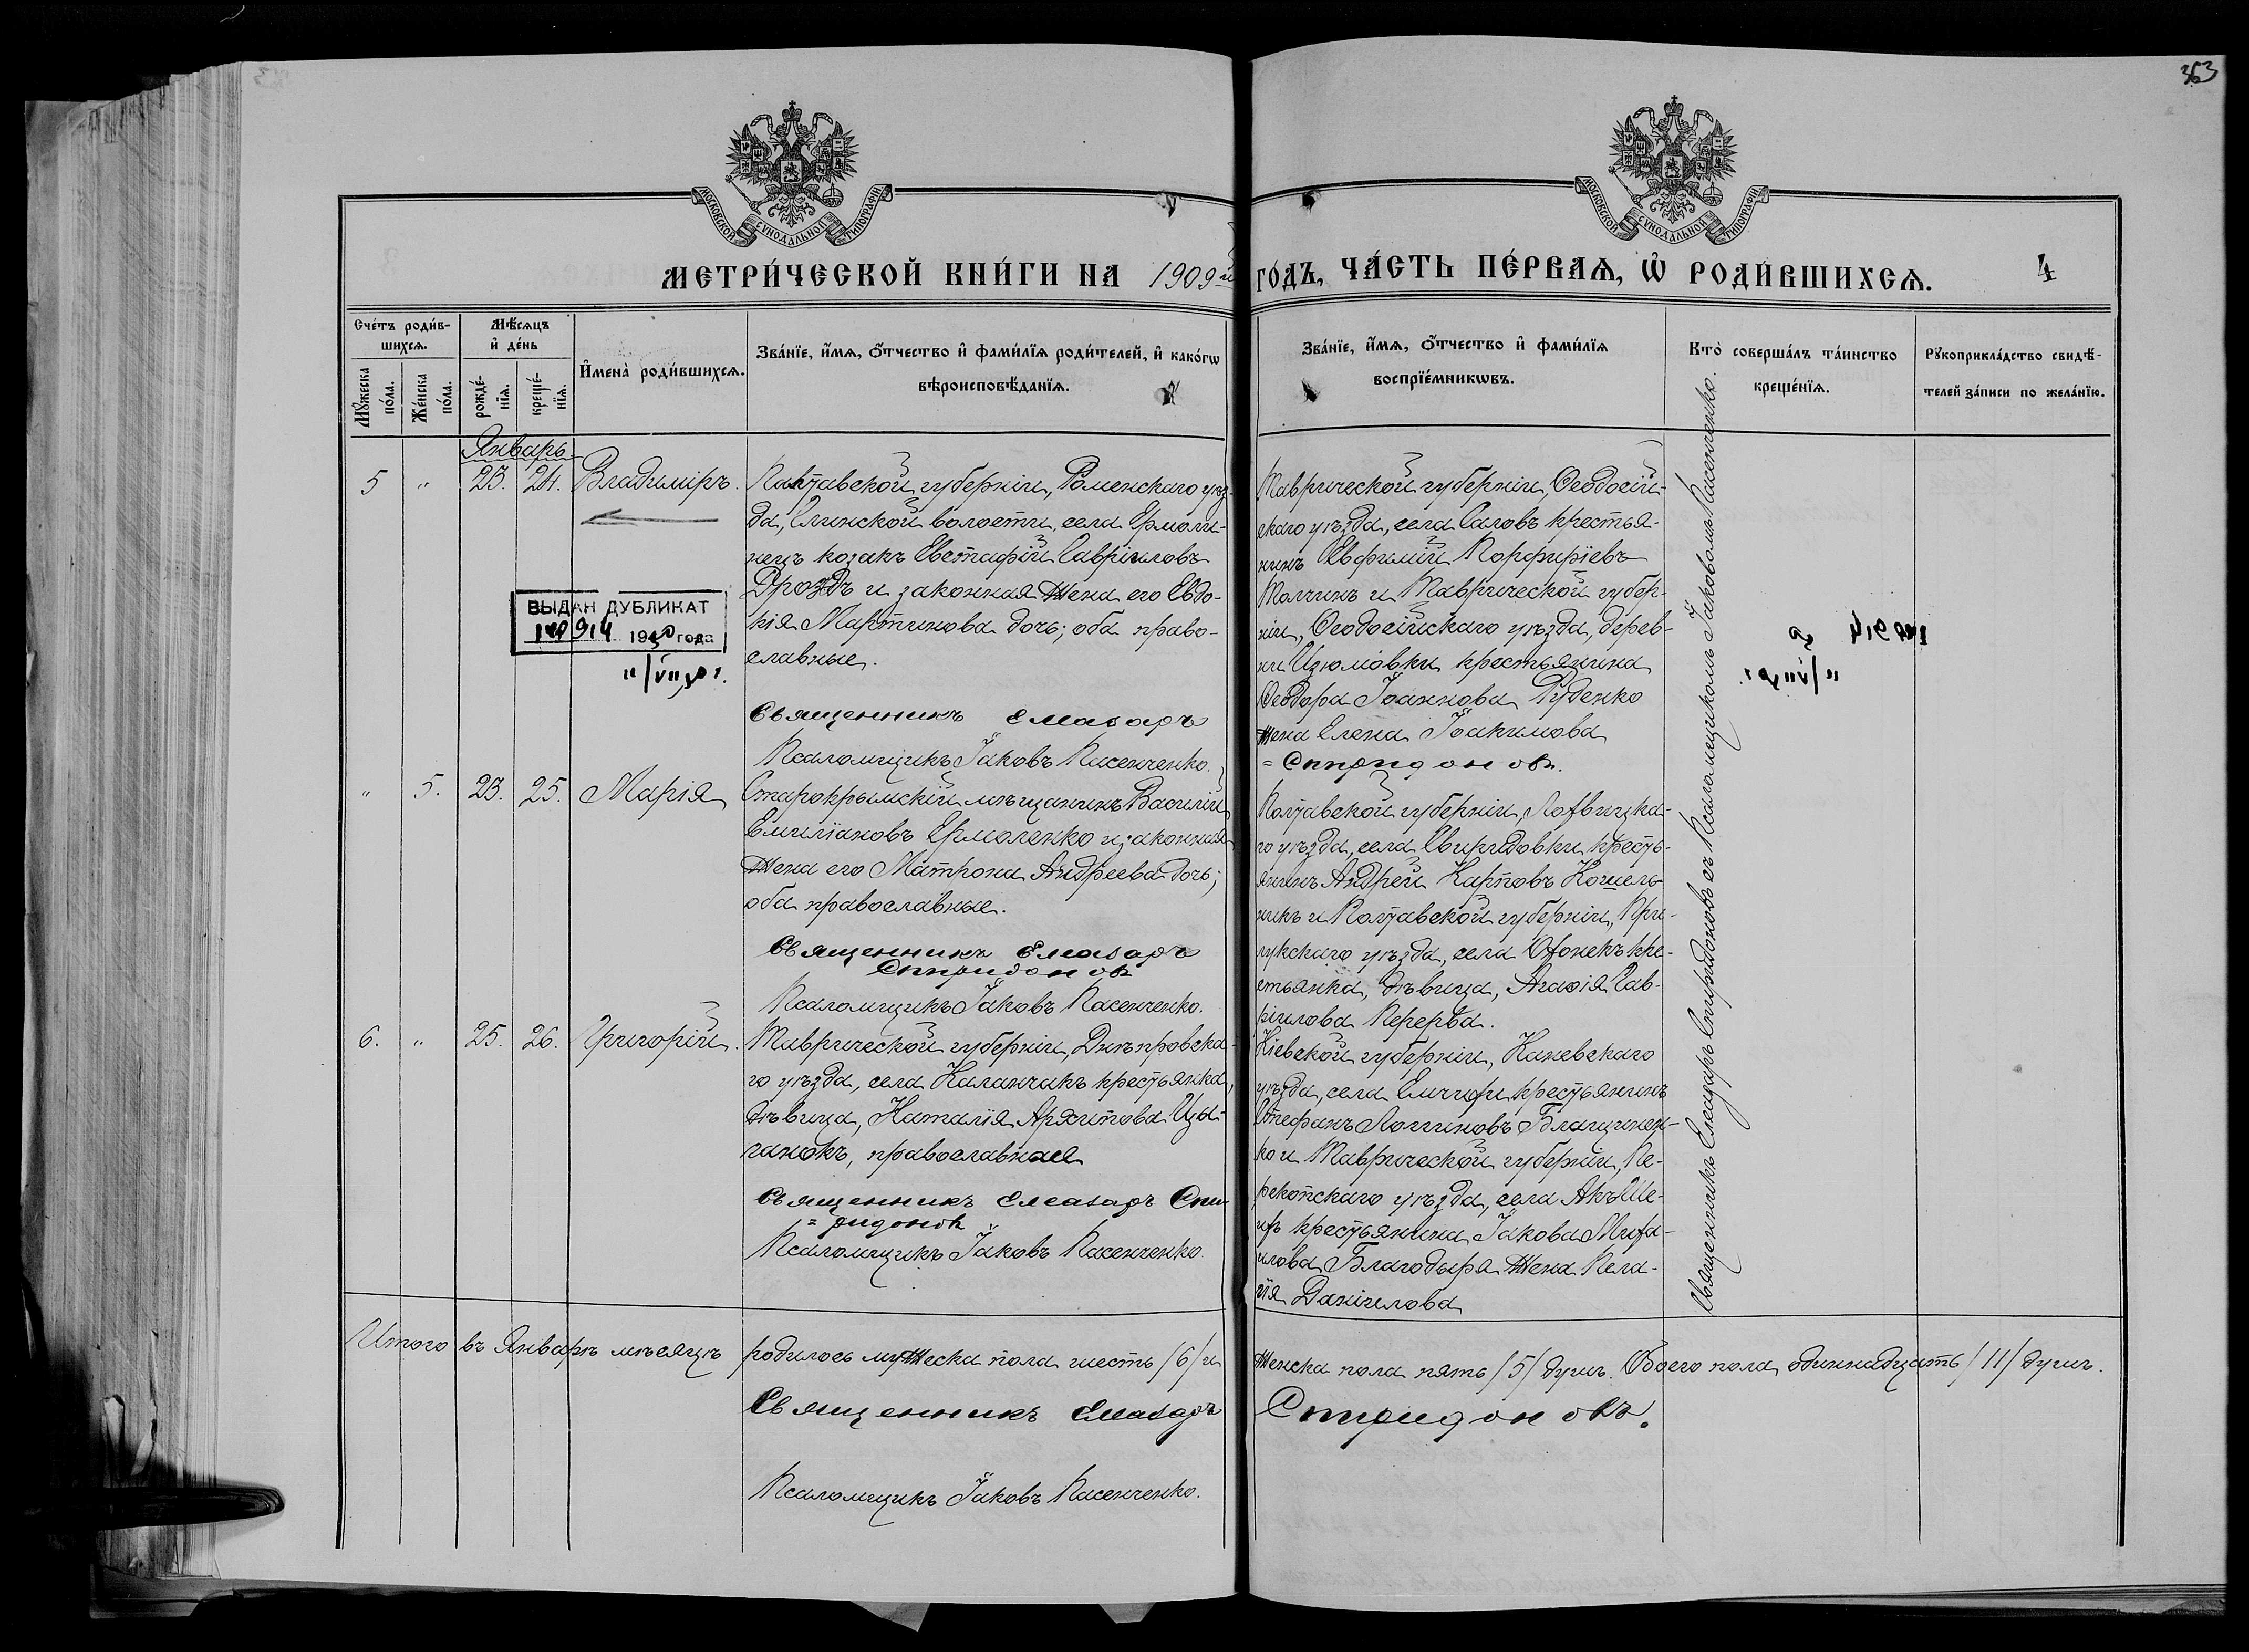 363
МОСКОВСКОЙ СѴНОДАЛЬНОЙ ТИПОГРАФІИ
МОСКОВСКОЙ СѴНОДАЛЬНОЙ ТИПОГРАФІИ
МЕТРИ́ЧЕСКОЙ КНИ́ГИ НА 1909й
ГО́ДЪ, ЧА́СТЬ ПЕ́РВАѦ, Ѡ҆ РОДИ́ВШИХСѦ. 4
Сче́тъ роди́в-
шихсѧ.
Мѣ́сѧцъ
и҆ де́нь
Мꙋ́жеска по́ла.
Же́нска по́ла.
рожде́-
нїѧ.
креще́-
нїѧ.
И҆мена̀ роди́вшихсѧ.
Зва́нїе, и҆́мѧ, ѻ҆́тчество и҆ фами́лїѧ роди́телей, и҆ како́гѡ
вѣроисповѣ́данїѧ.
Зва́нїе, и҆́мѧ, ѻ҆́тчество и҆ фами́лїѧ
воспрїе́мникѡвъ.
Кто̀ соверша́лъ та́инство
креще́нїѧ.
Рꙋкоприкла́дство свидѣ́-
телей за́писи по жела́нїю.
Январь.
5 " 23. 24. Владиміръ.
Полтавской губерніи, Роменскаго уѣз-
да, Глинской волости, села Ермоли-
нецъ козакъ Евстафій Гавріиловъ
Дроздъ и законная жена его Евдо-
кія Мартинова дочь; оба право-
славные.
Священникъ Елеазаръ
Псаломщикъ Іаковъ Пасенченко.
ВЫДАН ДУБЛИКАТ
914 19 года
Таврической губерніи, Ѳеодосій-
скаго уѣзда, села Саловъ крестья-
нинъ Евфимій Порфиріевъ
Толчинъ и Таврической губер-
ніи, Ѳеодосійскаго уѣзда, дерев-
ни Изюмовки крестьянина
Ѳеодора Іоаннова Руденко
жена Елена Іоакимова
= Спиридоновъ.
" 5. 23. 25. Марія
Старокрымскій мѣщанинъ Василій
Емиліановъ Ермоленко и законная
жена его Матрона Андреева дочь;
оба православные.
Священникъ Елеазаръ
Спиридоновъ
Псаломщикъ Іаковъ Пасенченко.
Полтавской губерніи, Лохвицка-
го уѣзда, села Свиридовки кресть-
янинъ Андрей Карповъ Кошель-
никъ и Полтавской губерніи, При-
лукскаго уѣзда, села Охонекъ кре-
стьянка, дѣвица, Агафія Гав-
ріилова Перерва.
6. " 25. 26. Григорій.
Таврической губерніи, Днѣпровска-
го уѣзда, села Каланчакъ крестьянка,
дѣвица, Наталія Архипова Цы-
ганокъ, православная
Священникъ Елеазаръ Спи
= ридоновъ
Псаломщикъ Іаковъ Пасенченко.
Кіевской губерніи, Каневскаго
уѣзда, села Емчихи крестьянинъ
Стефанъ Логгиновъ Блащинен-
ко и Таврической губерніи, Пе-
рекопскаго уѣзда, села Акъ-Ше-
ихъ крестьянина Іакова Миха-
илова Благодыря жена Пела-
гія Даніилова
Священникъ Елеазаръ Спиридоновъ съ Псаломщикомъ Іаковомъ Пасенченко.
Итого въ Январѣ мѣсяцѣ родилось мужеска пола шесть /6/ и женска пола пять /5/ душъ. Обоего пола одиннадцать /11/ душъ.
Священникъ Елеазаръ Спиридоновъ.
Псаломщикъ Іаковъ Пасенченко.